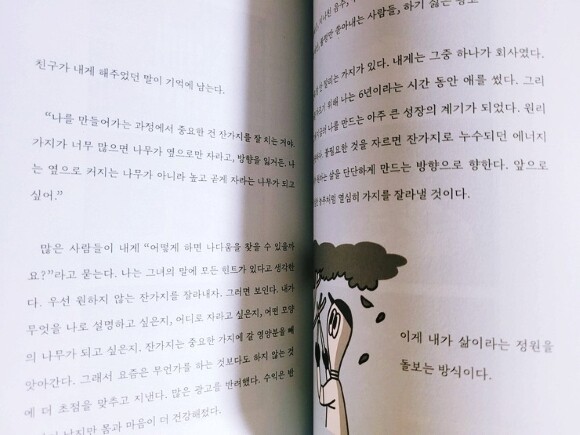 친구가 내게 해주었던 말이 기억에 남는다.
“나를 만들어가는 과정에서 중요한 건 잔가지를 잘 치는 거야.
가지가 너무 많으면 나무가 옆으로만 자라고, 방향을 잃거든. 나
는 옆으로 커지는 나무가 아니라 높고 곧게 자라는 나무가 되고
싶어.”
많은 사람들이 내게 “어떻게 하면 나다움을 찾을 수 있을까
요?”라고 묻는다. 나는 그녀의 말에 모든 힌트가 있다고 생각한
다. 우선 원하지 않는 잔가지를 잘라내자. 그러면 보인다. 내가
무엇을 나로 설명하고 싶은지, 어디로 자라고 싶은지, 어떤 모양
의 나무가 되고 싶은지. 잔가지는 중요한 가지에 갈 영양분을 빼
앗아간다. 그래서 요즘은 무언가를 하는 것보다도 하지 않는 것
에 더 초점을 맞추고 지낸다. 많은 광고를 반려했다. 수익은 반
낮지만 몸과 마음이 더 건강해졌다.
지나친 음주,
쏟아내는 사람들, 하기 싫은 광고
가지가 있다. 내게는 그중 하나가 회사였다.
위해 나는 6년이라는 시간 동안 애를 썼다. 그리
나를 만드는 아주 큰 성장의 계기가 되었다. 원리
불필요한 것을 자르면 잔가지로 누수되던 에너지
삶을 단단하게 만드는 방향으로 향한다. 앞으로
열심히 가지를 잘라낼 것이다.
이게 내가 삶이라는 정원을
돌보는 방식이다.